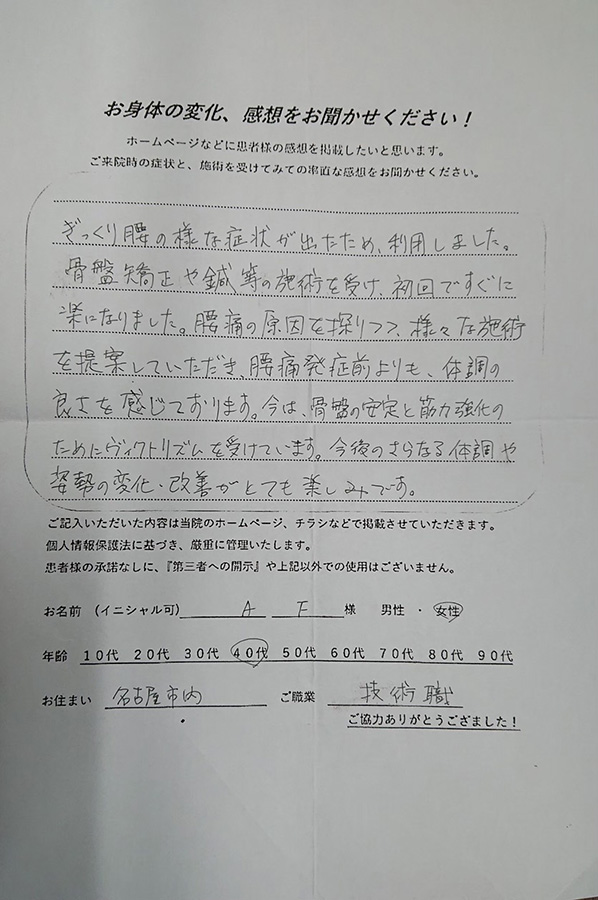 お身体の変化、感想をお聞かせください！
ホームページなどに患者様の感想を掲載したいと思います。
ご来院時の症状と、施術を受けてみての率直な感想をお聞かせください。
ぎっくり腰の様な症状が出たため、利用しました。
骨盤矯正や鍼等の施術を受け、初回ですぐに
楽になりました。腰痛の原因を探りつつ、様々な施術
を提案していただき、腰痛発症前よりも、体調の
良さを感じております。今は、骨盤の安定と筋力強化の
ためにヴィクトリズムを受けています。今後のさらなる体調や
姿勢の変化・改善がとても楽しみです。
ご記入いただいた内容は当院のホームページ、チラシなどで掲載させていただきます。
個人情報保護法に基づき、厳重に管理いたします。
患者様の承諾なしに、『第三者への開示』や上記以外での使用はございません。
お名前 (イニシャル可) A F 様 男性 ・ 女性
年齢 10代 20代 30代 40代 50代 60代 70代 80代 90代
お住まい 名古屋市内 ご職業 技術職
ご協力ありがとうござました！